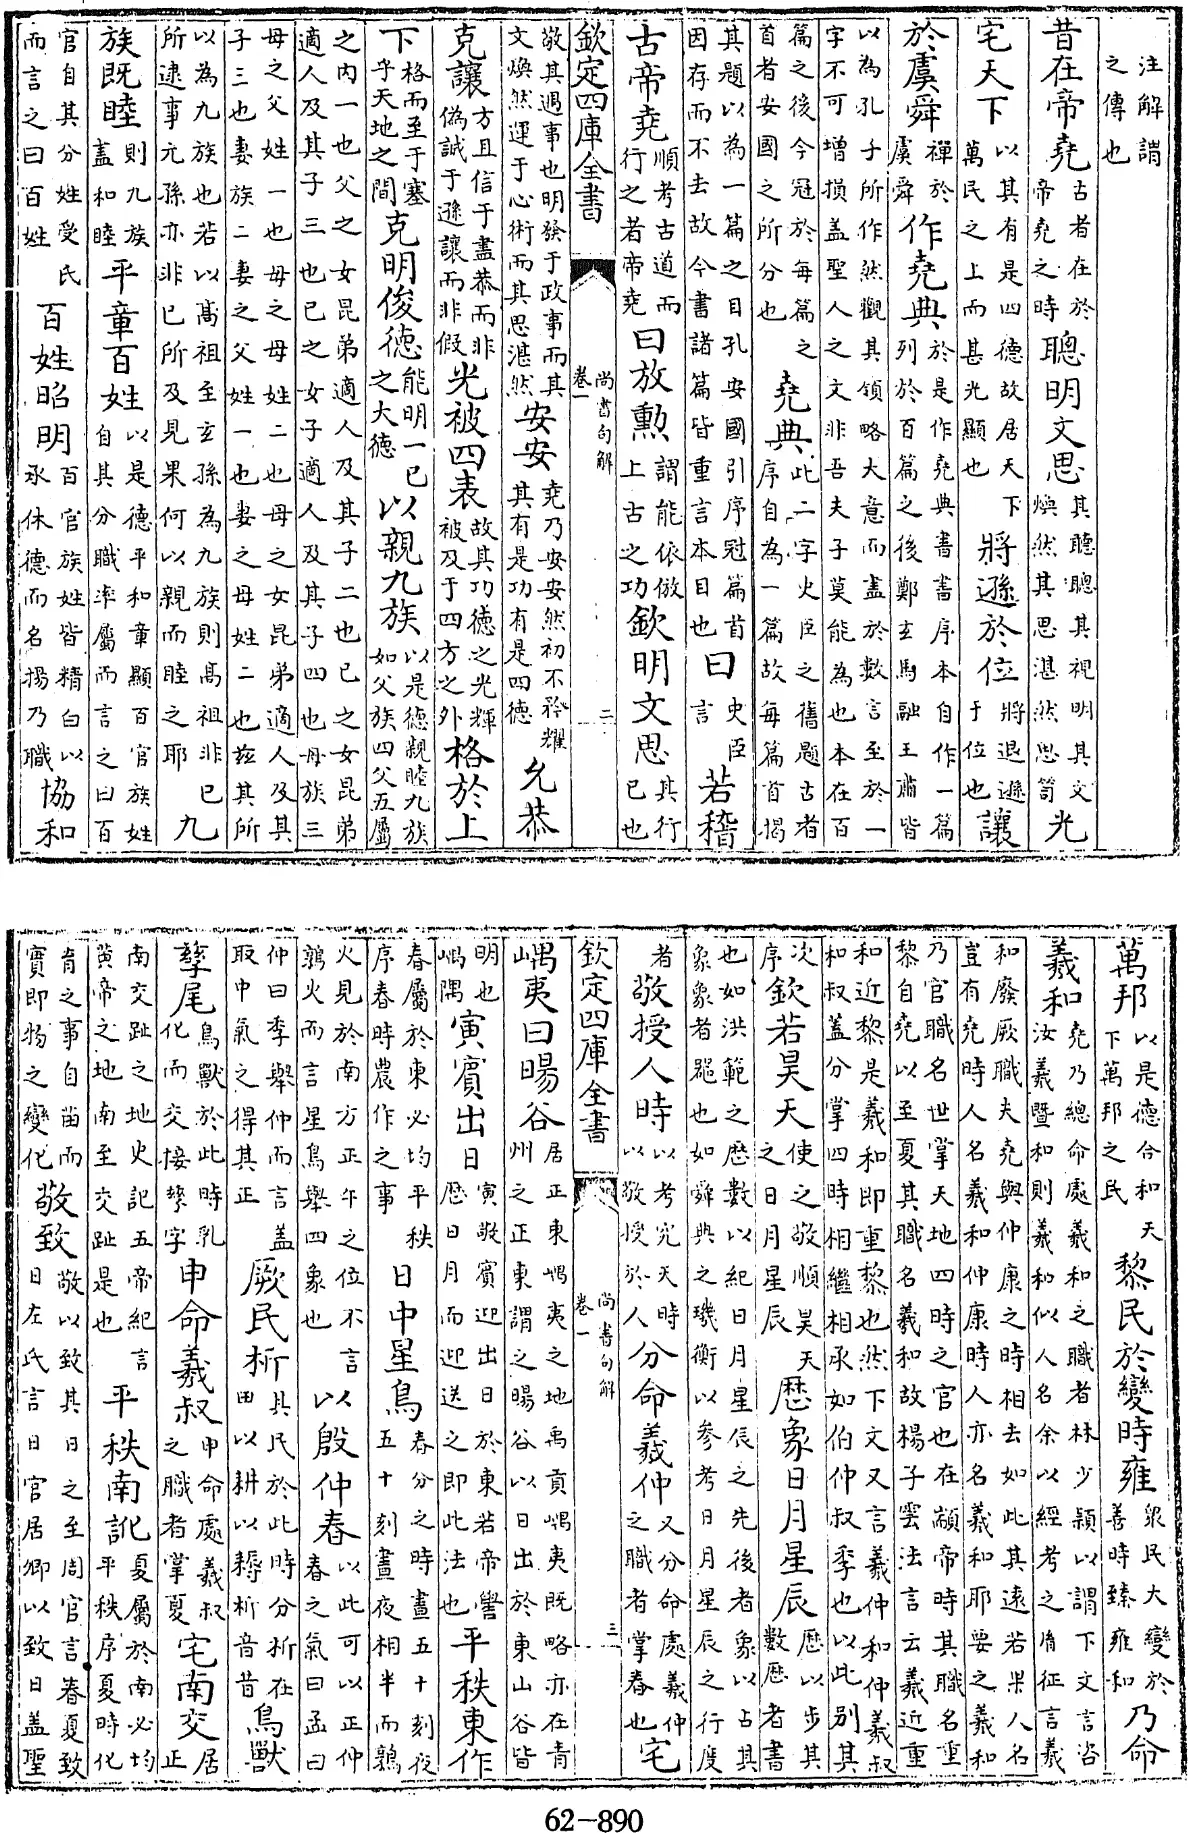 注解謂之傳也
昔在帝堯古者在於帝堯之時聰明文思其聽聰其視明其文煥然其思湛然思笥光
宅天下以其有是四德故居天下萬民之上而甚光顯也將遜於位將退遜于位也讓
於虞舜禪於虞舜作堯典於是作堯典書書序本自作一篇列於百篇之後鄭玄馬融王肅皆
以為孔子所作然觀其領略大意而盡於數言至於一字不可增損盖聖人之文非吾夫子莫能為也本在百
篇之後今冠於每篇之首者安國之所分也堯典此二字史臣之舊題古者序自為一篇故每篇首揭
其題以為一篇之目孔安國引序冠篇首因存而不去故今書諸篇皆重言本目也曰史臣言若稽
古帝堯順考古道而行之者帝堯曰放勲謂能依倣上古之功欽明文思其行己也
欽定四庫全書 尚書句解 卷一 二
敬其遇事也明發于政事而其文煥然運于心術而其思湛然安安堯乃安安然初不矜耀其有是功有是四德允恭
克讓方且信于盡恭而非偽誠于遜讓而非假光被四表故其功德之光輝被及于四方之外格於上
下格而至于塞乎天地之間克明俊德能明一己之大德以親九族以是德親睦九族如父族四父五屬
之内一也父之女昆弟適人及其子二也已之女昆弟適人及其子三也已之女子適人及其子四也母族三
母之父姓一也母之母姓二也母之女昆弟適人及其子三也妻族二妻之父姓一也妻之母姓二也兹其所
以為九族也若以髙祖至玄孫為九族則髙祖非已所逮事元孫亦非已所及見果何以親而睦之耶九
族既睦則九族盖和睦平章百姓以是德平和章顯百官族姓自其分職率屬而言之曰百
官自其分姓受氏而言之曰百姓百姓昭明百官族姓皆精白以承休德而名揚乃職協和
萬邦以是德合和天下萬邦之民黎民於變時雍衆民大變於善時臻雍和乃命
羲和堯乃總命處羲和之職者林少穎以謂下文言咨汝羲暨和則羲和似人名余以經考之㣧征言羲
和廢厥職夫堯與仲康之時相去如此其遠若果人名豈有堯時人名羲和仲康時人亦名羲和耶要之羲和
乃官職名世掌天地四時之官也在顓帝時其職名重黎自堯以至夏其職名羲和故楊子雲法言云羲近重
和近黎是羲和即重黎也然下文又言羲仲和仲羲叔和叔盖分掌四時相繼相承如伯仲叔季也以此别其
次序欽若昊天使之敬順昊天之日月星辰厯象日月星辰厯以步其數厯者書
也如洪範之厯數以紀日月星辰之先後者象以占其象象者器也如舜典之璣衡以參考日月星辰之行度
者敬授人時以考究天時以敬授於人分命羲仲又分命處羲仲之職者掌春也宅
欽定四庫全書 尚書句解 卷一 三
嵎夷曰暘谷居正東嵎夷之地禹貢嵎夷既略亦在青州之正東謂之暘谷以日出於東山谷皆
明也嵎隅寅賓出日寅敬賓迎出日於東若帝嚳厯日月而迎送之即此法也平秩東作
春屬於東必均平秩序春時農作之事日中星鳥春分之時晝五十刻夜五十刻晝夜相半而鶉
火見於南方正午之位不言鶉火而言星鳥舉四象也以殷仲春以此可以正仲春之氣曰孟曰
仲曰季舉仲而言盖取中氣之得其正厥民析其民於此時分析在田以耕以耨析音昔鳥獸
孳尾鳥獸於此時乳化而交接孳字申命羲叔申命處羲叔之職者掌夏宅南交居正
南交趾之地史記五帝紀言黄帝之地南至交趾是也平秩南訛夏屬於南必均平秩序夏時化
育之事自苗而實即物之變化敬致敬以致其日之至周官言春夏致日左氏言日官居卿以致日盖聖
62-890